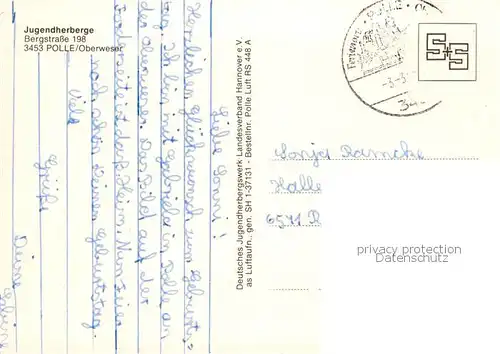 Jugendherberge
Bergstraße 198
3453 POLLE/Oberweser
Liebe Sonni!
Herzlichen Glückwunsch zum Geburts-
tag. Ich bin mit Gabriele in Polle an
der Oberweser. Das Bild auf der
Vorderseite ist das Heim. Nun feier
noch schön Deinen Geburtstag.
Viele
Grüße
Deine
Deutsches Jugendherbergswerk Landesverband Hannover e.V.
as Luftaufn., gen. SH 1-37131 - Bestellnr. Polle Luft RS 448 A
POLLE
-3.-3.
S+S
Sonja Ramcke
Halle
6571 R
privacy protection
Datenschutz